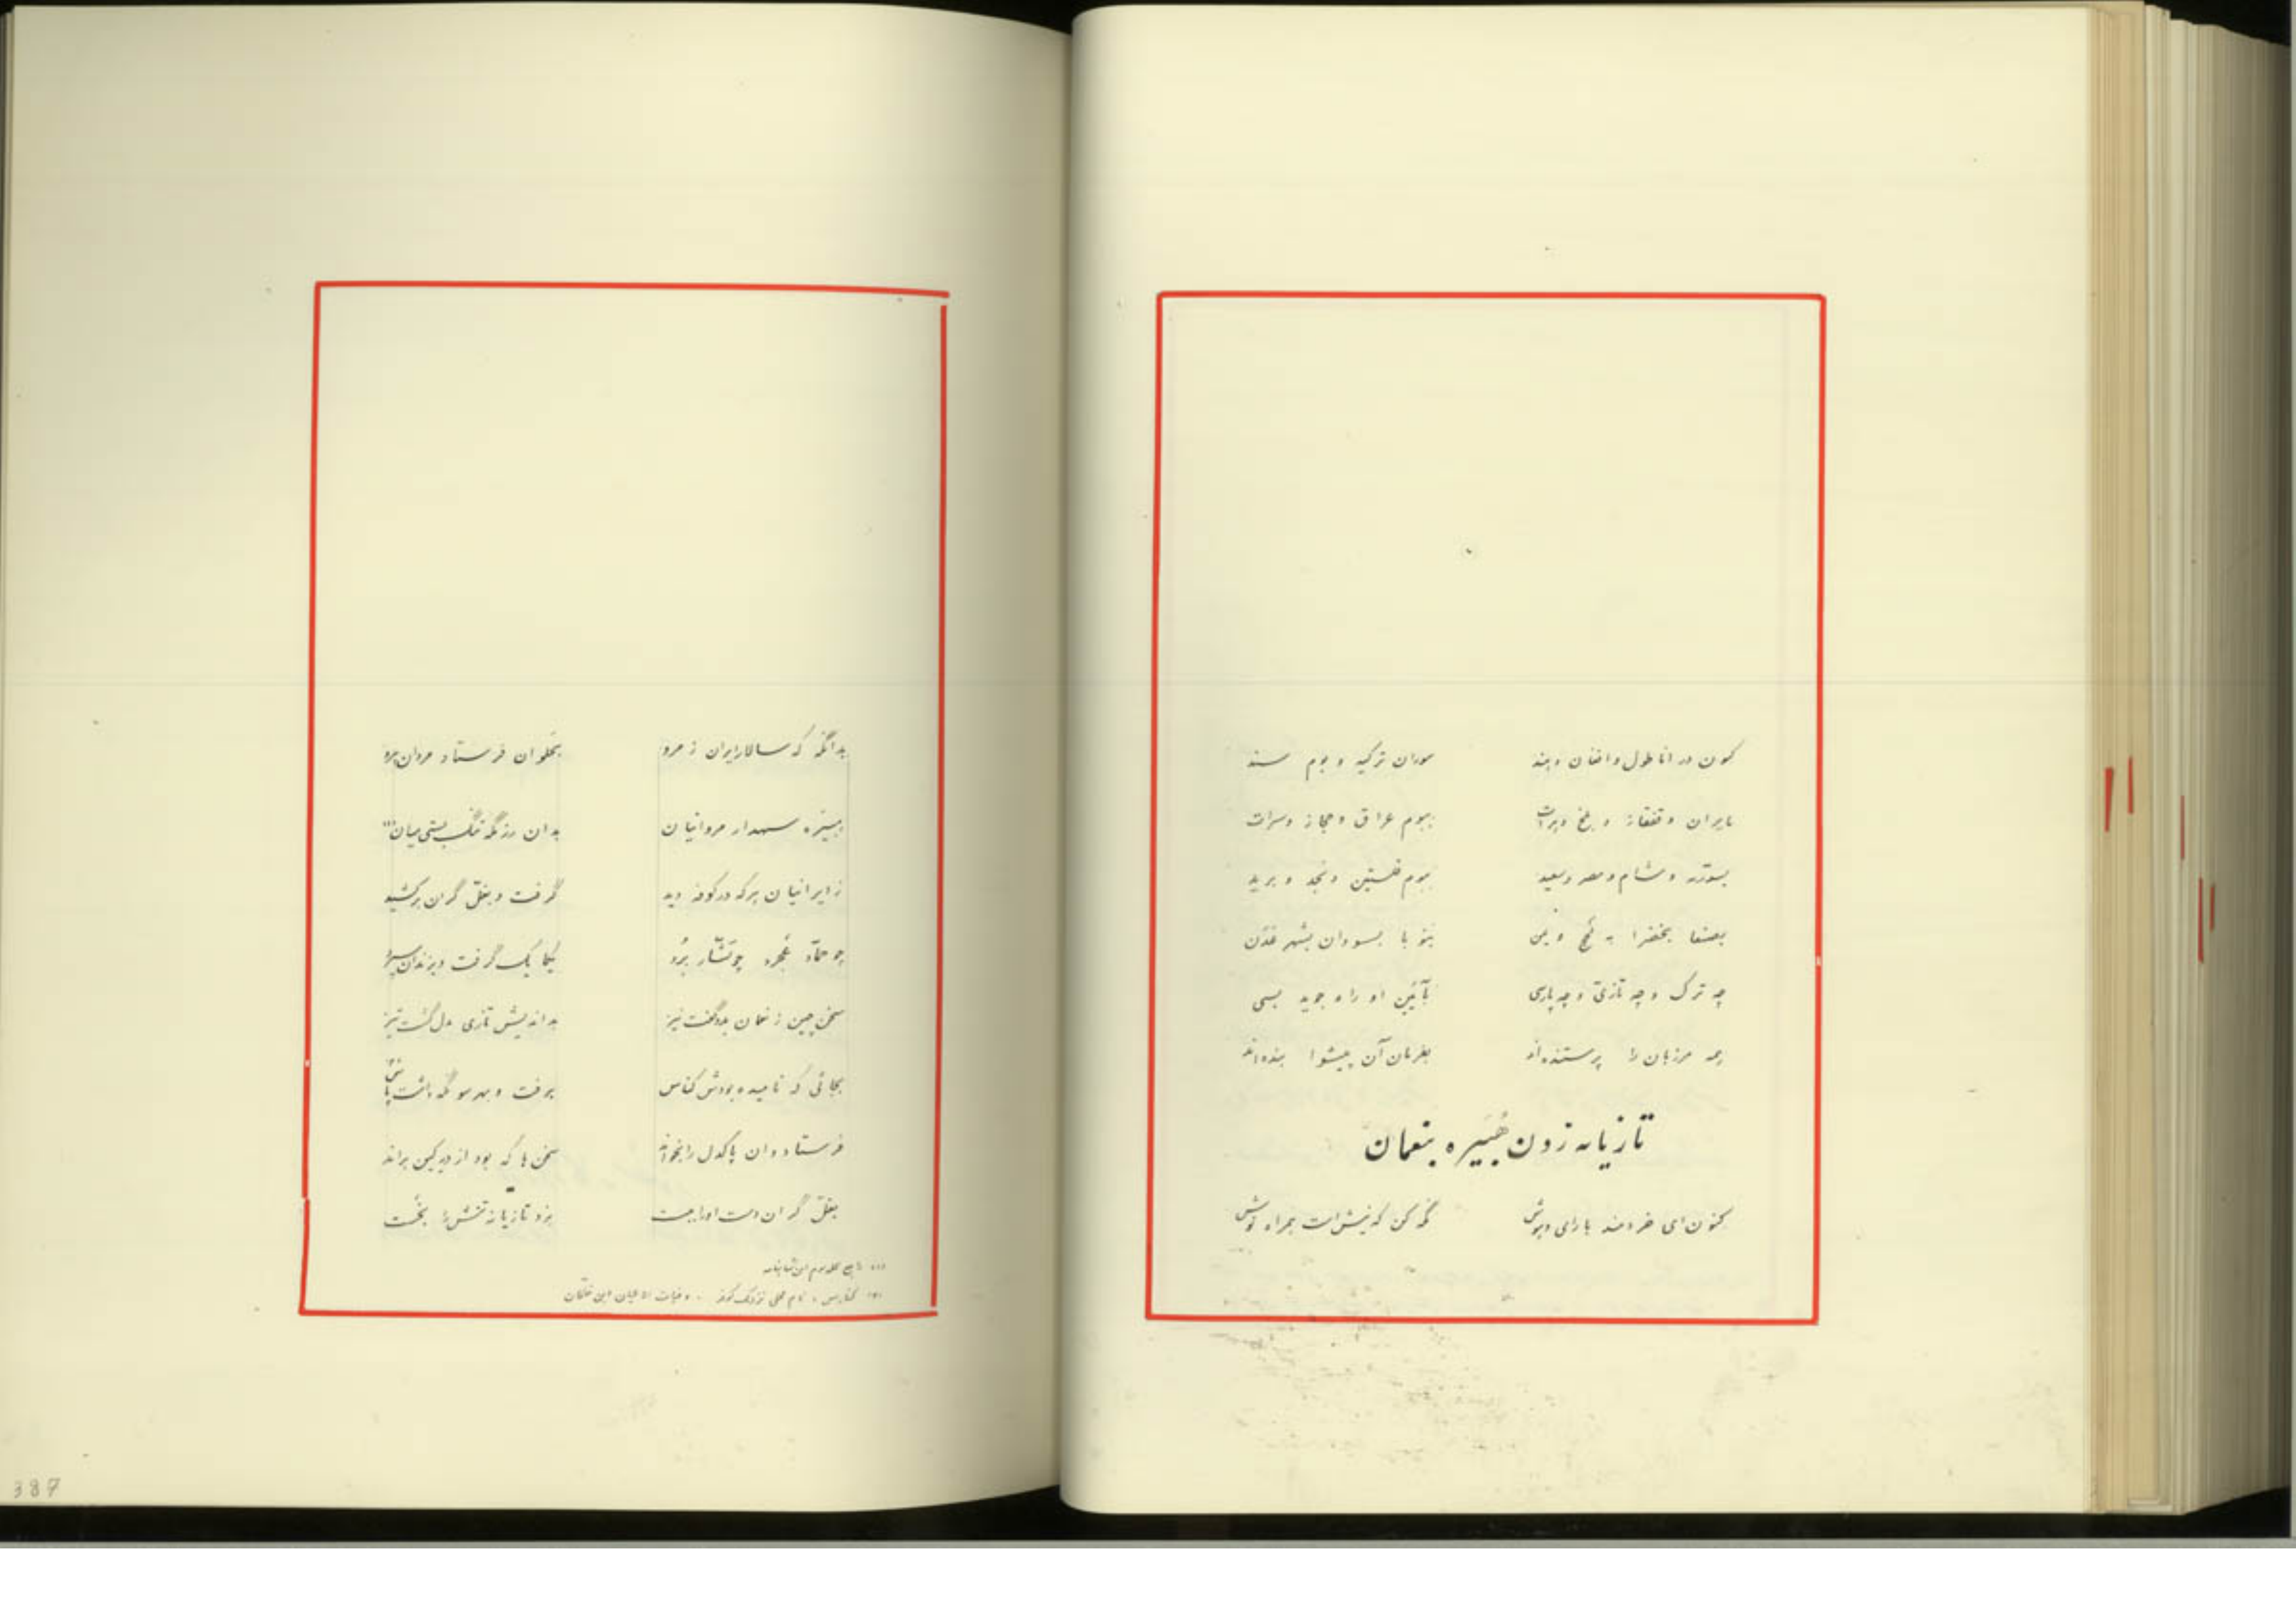 کنون در اناطول و افغان و هند سوران ترکیه و بوم سند
بایران و قفقاز و بلخ و هرات ببوم عراق و حجاز و سرات
بسوریه و شام و مصر و سعید ببوم فلسطین و نجد و برید
بصنعا بخضرا به و یمن بسودان بشهر عدن
چه ترک و چه تازی و چه پارسی بآئین او راه جوید بسی
همه مرزبان را پرستنده‌اند بفرمان آن پیشوا بنده‌اند
تازیانه زدن هُبَیره بنعمان
کنون ای خردمند بارای و هوش نگه کن که نیش است همراه نوش
بدانگه که سالار ایران ز مرو بحُلوان فرستاد مردان مرو
هبیره سپهدار مروانیان بدان رزمگه تنگ بستی میان
ز ایرانیان هر که در کوفه دید گرفت و بغلّ گران برکشید
چو حمّاد عَجرد چو بَشّار بُرد یکایک گرفت و بزندان سپرد
سخن چین ز نعمان بدو گفت نیز بداندیش تازی بدل گشت تیز
بجائی که نامیده بودش کناس برفت و بهر سو نگه داشت پاس
فرستاد و آن پاکدل را بخواند سخن‌ها که بود از در کین براند
بغلّ گران دست او را ببست بزد تازیانه تنش را بخَست
کناس، نام محلی نزدیک کوفه .. وفیات الاعیان ابن خلّکان
387